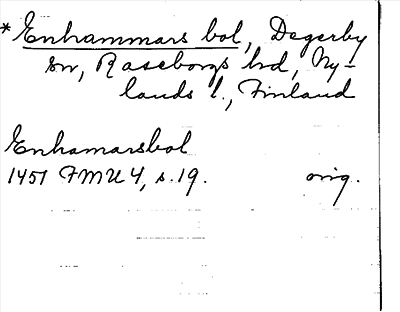 *Enhammars bol, Degerby
sn, Raseborgs hd, Ny-
lands l., Finland
Enhamarsbol
1451 FMU 4, s. 19. orig.